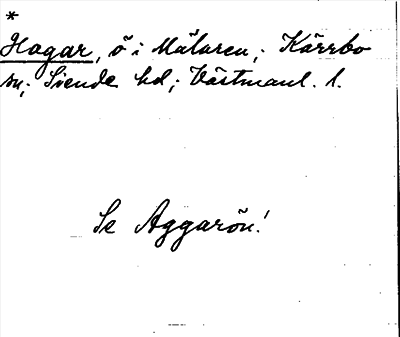 *
Hagar, ö i Mälaren; Kärrbo
sn; Siende hd; Västmanl. l.
Se Aggarön!